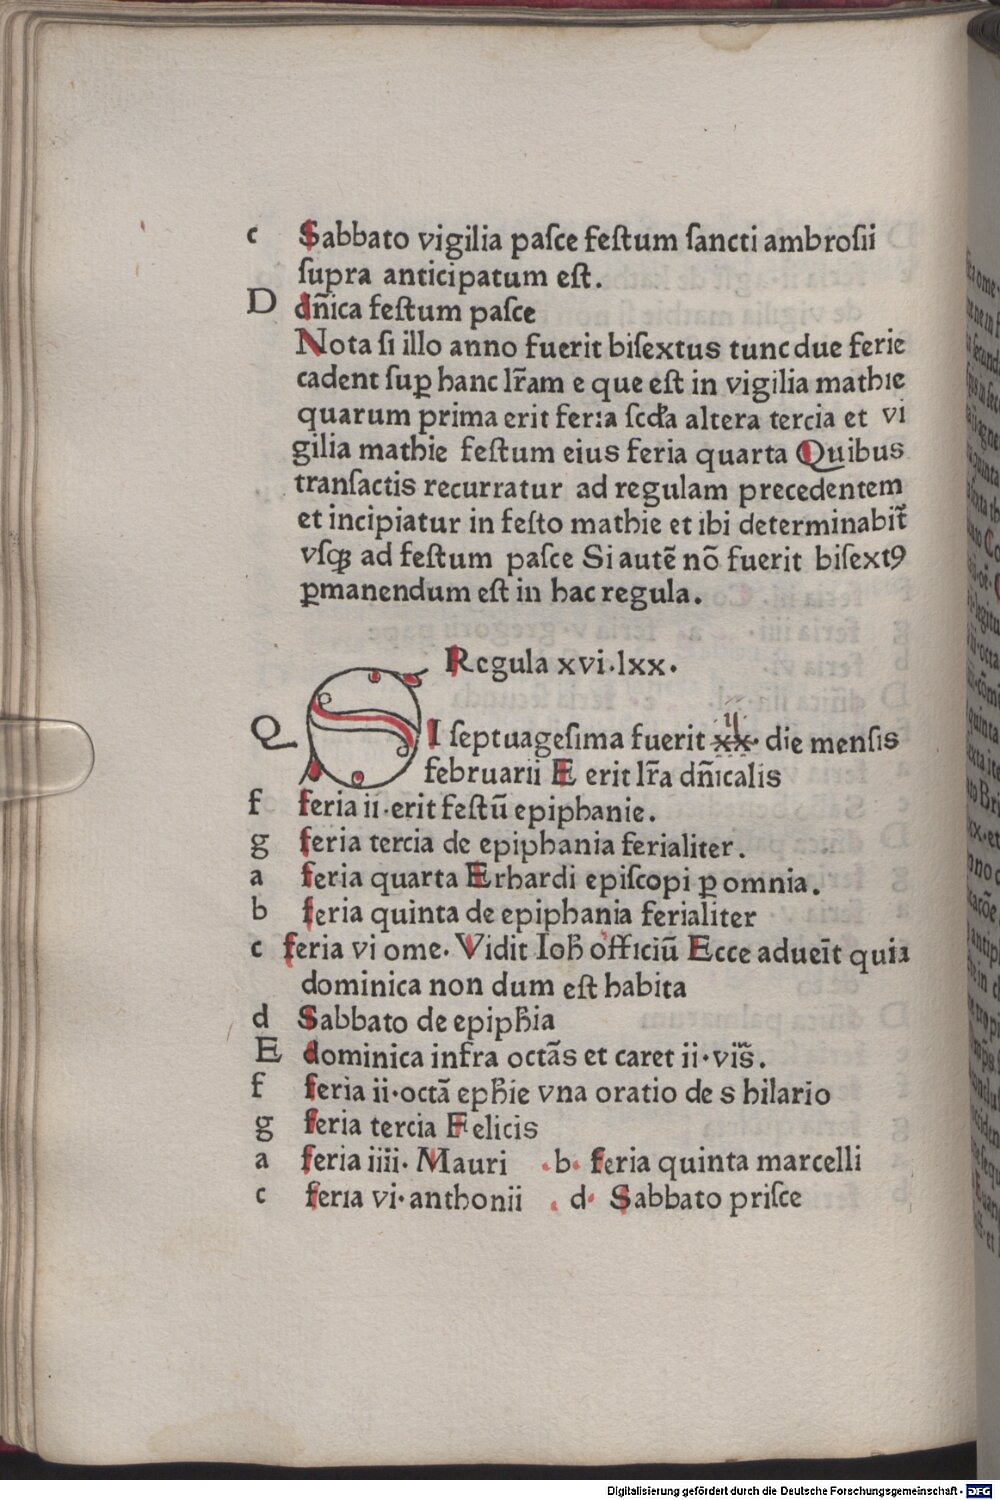 c Sabbato vigilia pasce festum sancti ambrosii
supra anticipatum est.
D dn̄ica festum pasce
Nota si illo anno fuerit bisextus tunc due ferie
cadent suꝑ hanc lr̄am e que est in vigilia mathie
quarum prima erit feria scd̄a altera tercia et vi
gilia mathie festum eius feria quarta Quibus
transactis recurratur ad regulam precedentem
et incipiatur in festo mathie et ibi determinabit᷑
vsqꝫ ad festum pasce Si autē nō fuerit bisextꝰ
ꝑmanendum est in hac regula.
Regula xvi.lxx.
Q SI septuagesima fuerit xx. die mensis
februarii E erit lr̄a dn̄icalis
f feria ii.erit festū epiphanie.
g feria tercia de epiphania ferialiter.
a feria quarta Erhardi episcopi ꝑ omnia.
b feria quinta de epiphania ferialiter
c feria vi ome. Vidit Ioh̄ officiū Ecce adueīt quia
dominica non dum est habita
d Sabbato de epiph̄ia
E dominica infra octās et caret ii.vis̄.
f feria ii.octā eph̄ie vna oratio de s hilario
g feria tercia Felicis
a feria iiii. Mauri .b. feria quinta marcelli
c feria vi.anthonii . d. Sabbato prisce
Digitalisierung gefördert durch die Deutsche Forschungsgemeinschaft - DFG